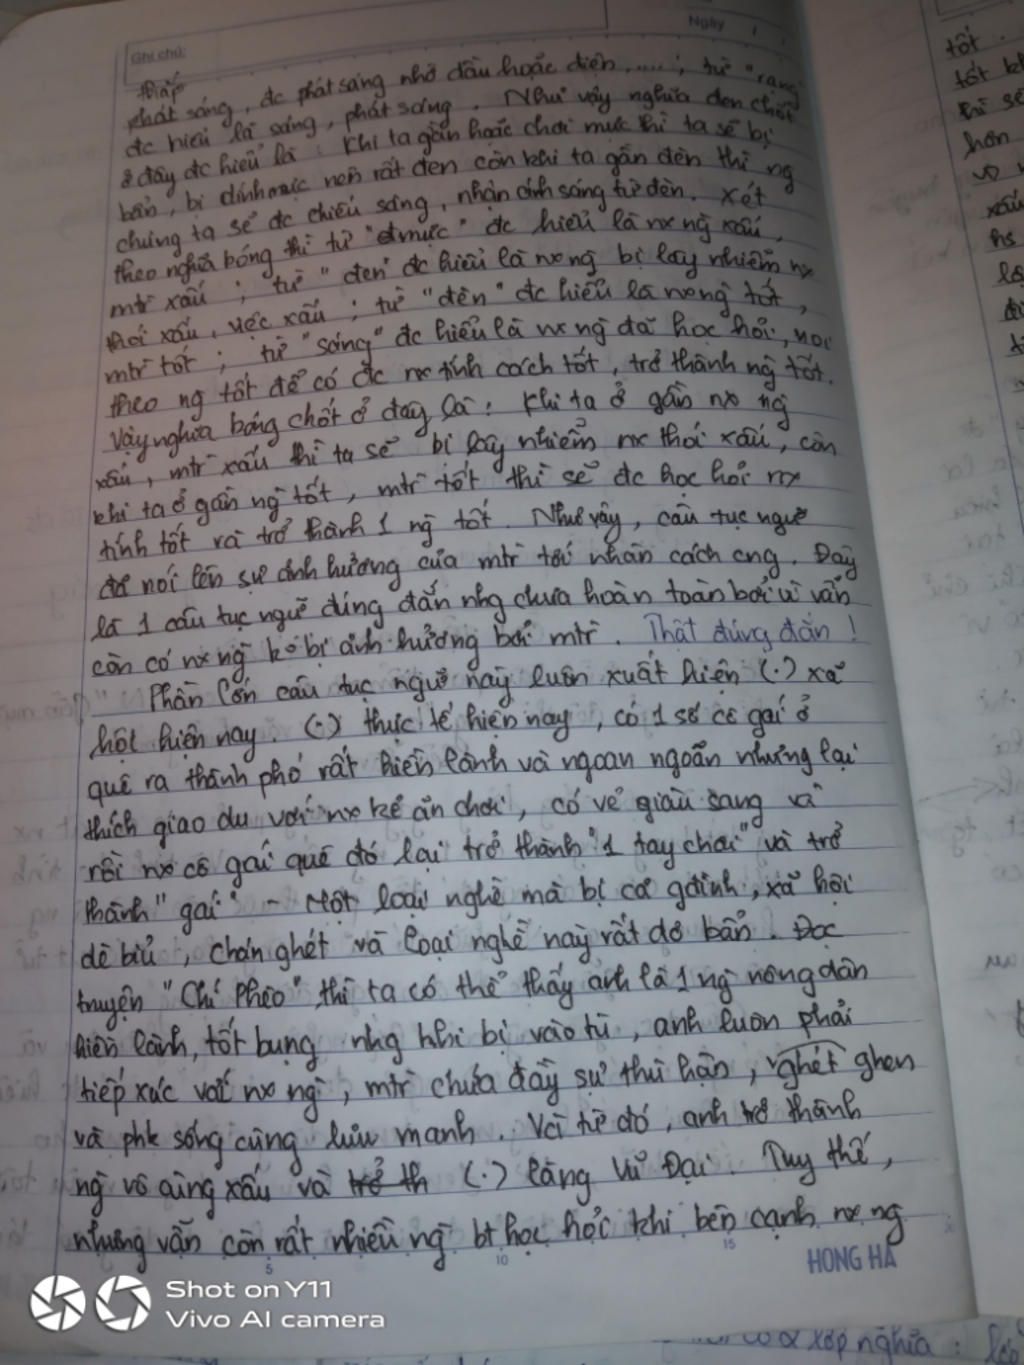 Ghi chú:
Ngày
thắp
phát sáng, đc phát sáng nhờ dầu hoặc điện,....; từ "rạng"
đc hiểu là sáng, phát sáng. Như vậy nghĩa đen chốt
ở đây đc hiểu là: Khi ta gần hoặc chơi mực thì ta sẽ bị
bẩn, bị dính mực nên rất đen còn khi ta gần đèn thì ng
chúng ta sẽ đc chiếu sáng, nhận ánh sáng từ đèn. Xét
theo nghĩa bóng thì từ "mực" đc hiểu là nx ng xấu,
mtr xấu; từ "đen" đc hiểu là nx ng bị lây nhiễm nx
thói xấu, việc xấu; từ "đèn" đc hiểu là nx ng tốt,
mtr tốt; từ "sáng" đc hiểu là nx ng đã học hỏi, noi
theo ng tốt để có đc nx tính cách tốt, trở thành ng tốt.
Vậy nghĩa bóng chốt ở đây là: Khi ta ở gần nx ng
xấu, mtr xấu thì ta sẽ bị lây nhiễm nx thói xấu, còn
khi ta ở gần ng tốt, mtr tốt thì sẽ đc học hỏi nx
tính tốt và trở thành 1 ng tốt. Như vậy, câu tục ngữ
đã nói lên sự ảnh hưởng của mtr tới nhân cách cng. Đây
là 1 câu tục ngữ đúng đắn nhg chưa hoàn toàn bởi vì vẫn
còn có nx ng ko bị ảnh hưởng bởi mtr. Thật đúng đắn!
Phần lớn câu tục ngữ này luôn xuất hiện (.) xã
hội hiện nay. (.) thực tế hiện nay, có 1 số cô gái ở
quê ra thành phố rất hiền lành và ngoan ngoãn nhưng lại
thích giao du với nx kẻ ăn chơi, có vẻ giàu sang và
rồi nx cô gái quê đó lại trở thành "1 tay chơi" và trở
thành "gái" - Một loại nghề mà bị cả gđình, xã hội
dè bỉu, chán ghét và loại nghề này rất dơ bẩn. Đọc
truyện "Chí Phèo" thì ta có thể thấy anh là 1 ng nông dân
hiền lành, tốt bụng nhg khi bị vào tù, anh luôn phải
tiếp xúc với nx ng, mtr chứa đầy sự thù hận, ghét ghen
và phk sống cùng lưu manh. Và từ đó, anh trở thành
ng vô cùng xấu và trở th (.) làng Vũ Đại. Tuy thế,
nhưng vẫn còn rất nhiều ng bt học hỏi khi bên cạnh nx ng
5 10 15
HONG HA
Shot on Y11
Vivo AI camera
tốt.
hơn
xấu
hs
xếp nghĩa: